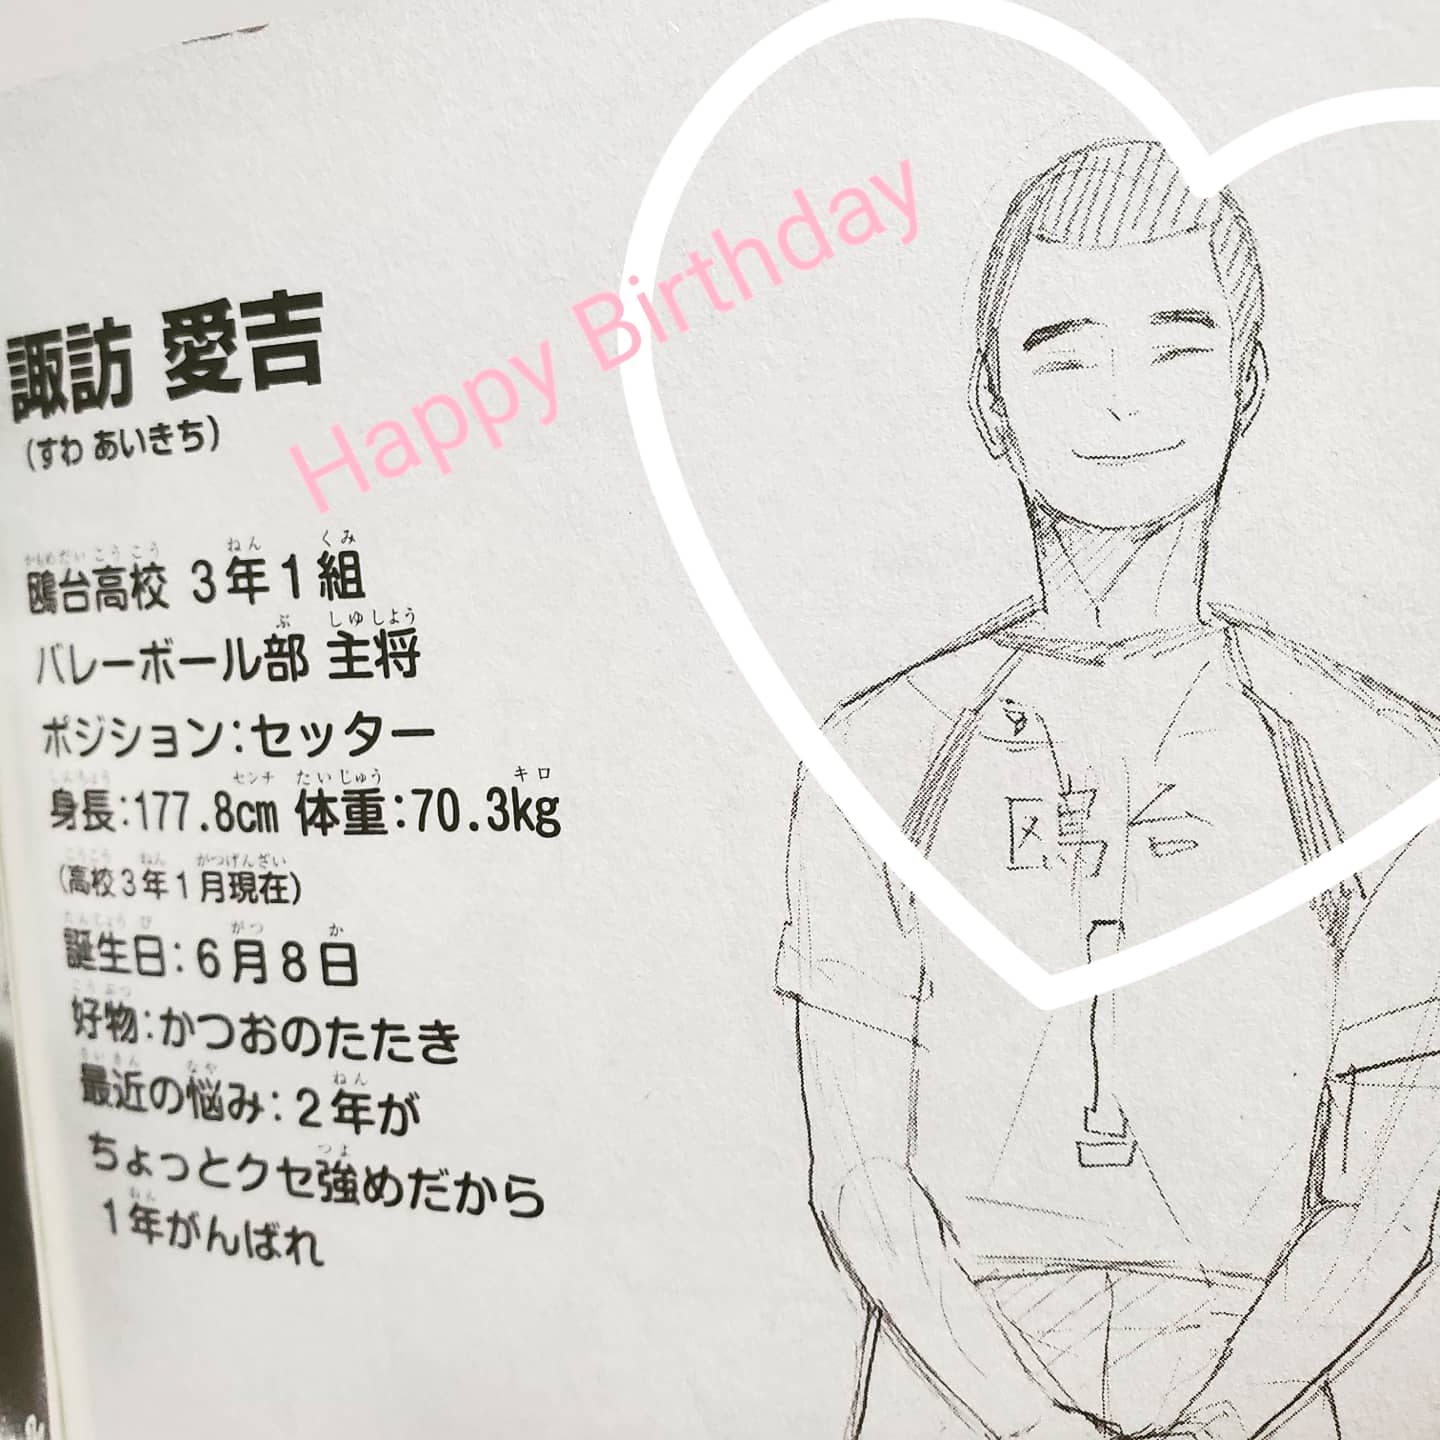 Happy Birthday
諏訪 愛吉
(すわ あいきち)
鴎台高校 3年1組
バレーボール部 主将
ポジション:セッター
身長:177.8cm 体重:70.3kg
(高校3年1月現在)
誕生日:6月8日
好物:かつおのたたき
最近の悩み:2年が
ちょっとクセ強めだから
1年がんばれ
鴎台